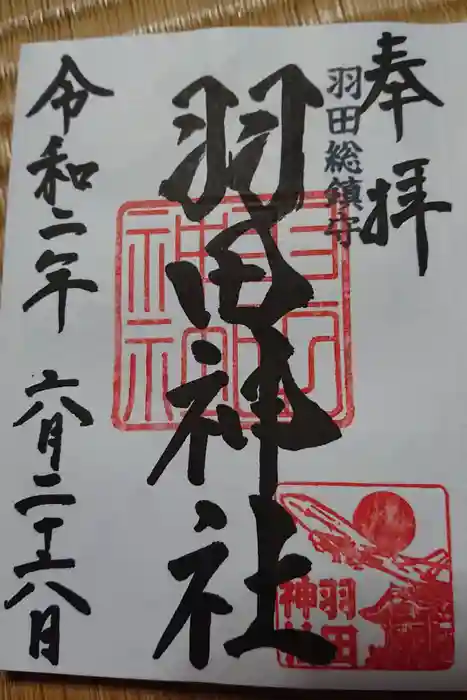 奉拝
羽田総鎮守
羽田神社
令和二年 六月二十八日
羽田神社
羽田
神社